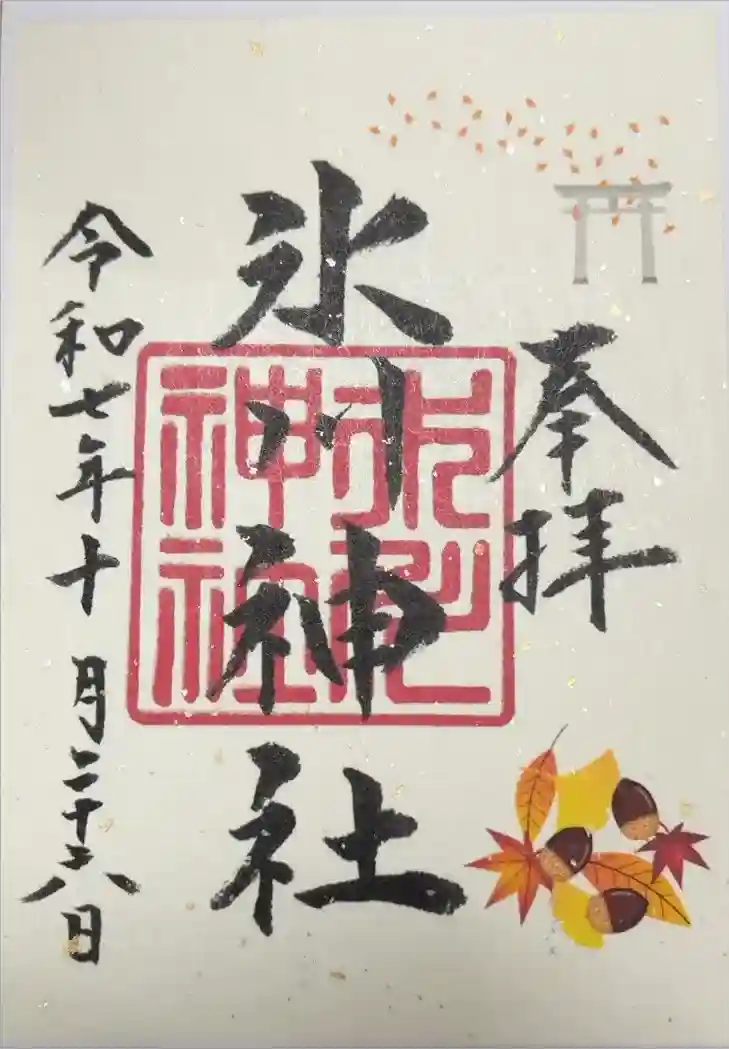 奉拝
氷川神社
氷川
神社
令和七年十月二十六日